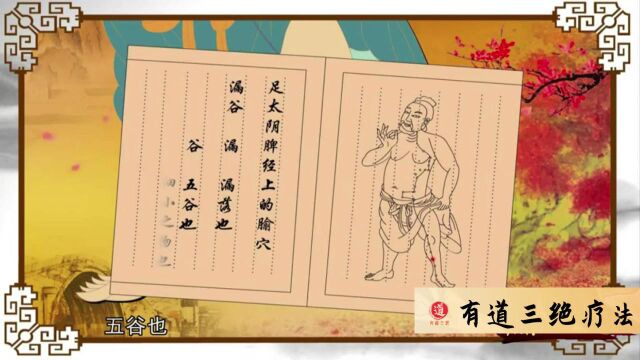 足太阴脾经上的腧穴
漏谷 漏 漏落也
谷 五谷也
五谷也
有道三绝疗法